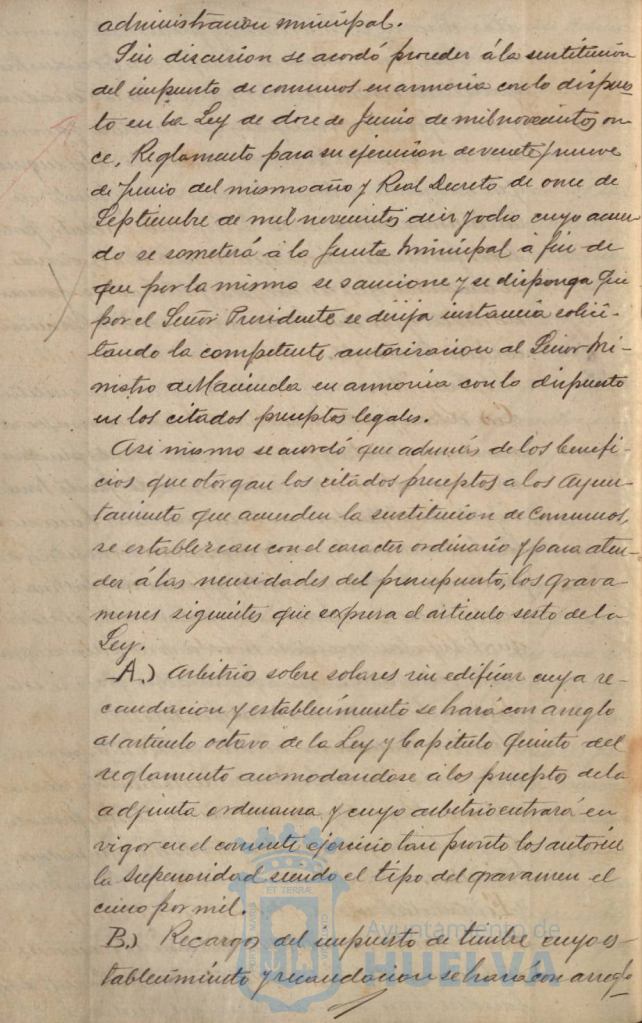 administracion municipal.
Sin discusion se acordó proceder á la sustitución
del impuesto de consumos en armonia con lo dispues-
to en la Ley de doce de Junio de mil novecientos on-
ce, Reglamento para su ejecucion de veinte y nueve
de Junio del mismo año y Real Decreto de once de
Septiembre de mil novecientos diez y ocho cuyo acuer-
do se someterá á la Junta Municipal á fin de
que por la misma se sancione y se disponga que
por el Señor Presidente se dirija instancia solici-
tando la competente autorizacion al Señor Mi-
nistro de Hacienda en armonia con lo dispuesto
en los citados preceptos legales.
Asi mismo se acordó que además de los benefi-
cios que otorgan los citados preceptos a los Ayun-
tamiento que acuerden la sustitucion de Consumos,
se establezcan con el caracter ordinario y para aten-
der á las necesidades del presupuesto, los grava-
menes siguientes que expresa el articulo sesto de la
Ley.
A.) Arbitrios sobre solares sin edificar cuya re-
caudacion y establecimiento se hará con arreglo
al articulo octavo de la Ley y Capitulo Quinto del
reglamento acomodandose á los preceptos de la
adjunta ordenanza y cuyo arbitrio entrará en
vigor en el corriente ejercicio tan pronto los autorice
la Superioridad siendo el tipo del gravamen el
cinco por mil.
B.) Recargos del impuesto de timbre cuyo es-
tablecimiento y recaudacion se hará con arreglo
Ayuntamiento de
HUELVA